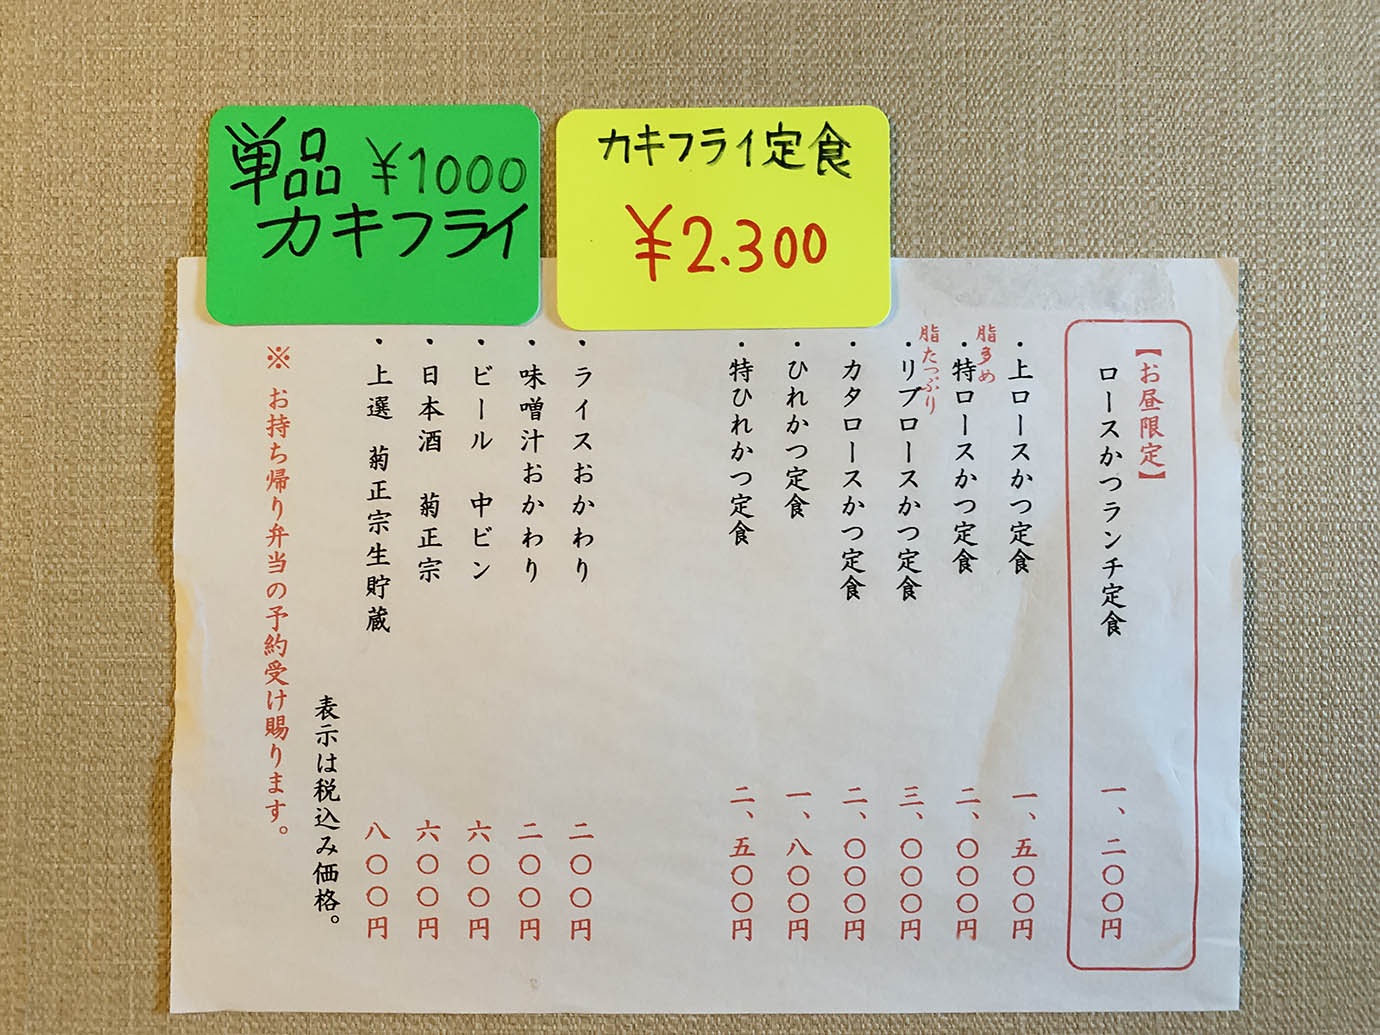 単品 ¥1000
カキフライ
カキフライ定食
¥2.300
【お昼限定】
ロースかつランチ定食 一、二〇〇円
・上ロースかつ定食 一、五〇〇円
脂多め
・特ロースかつ定食 二、〇〇〇円
脂たっぷり
・リブロースかつ定食 三、〇〇〇円
・カタロースかつ定食 二、〇〇〇円
・ひれかつ定食 一、八〇〇円
・特ひれかつ定食 二、五〇〇円
・ライスおかわり 二〇〇円
・味噌汁おかわり 二〇〇円
・ビール 中ビン 六〇〇円
・日本酒 菊正宗 六〇〇円
・上選 菊正宗生貯蔵 八〇〇円
表示は税込み価格。
※ お持ち帰り弁当の予約受け賜ります。